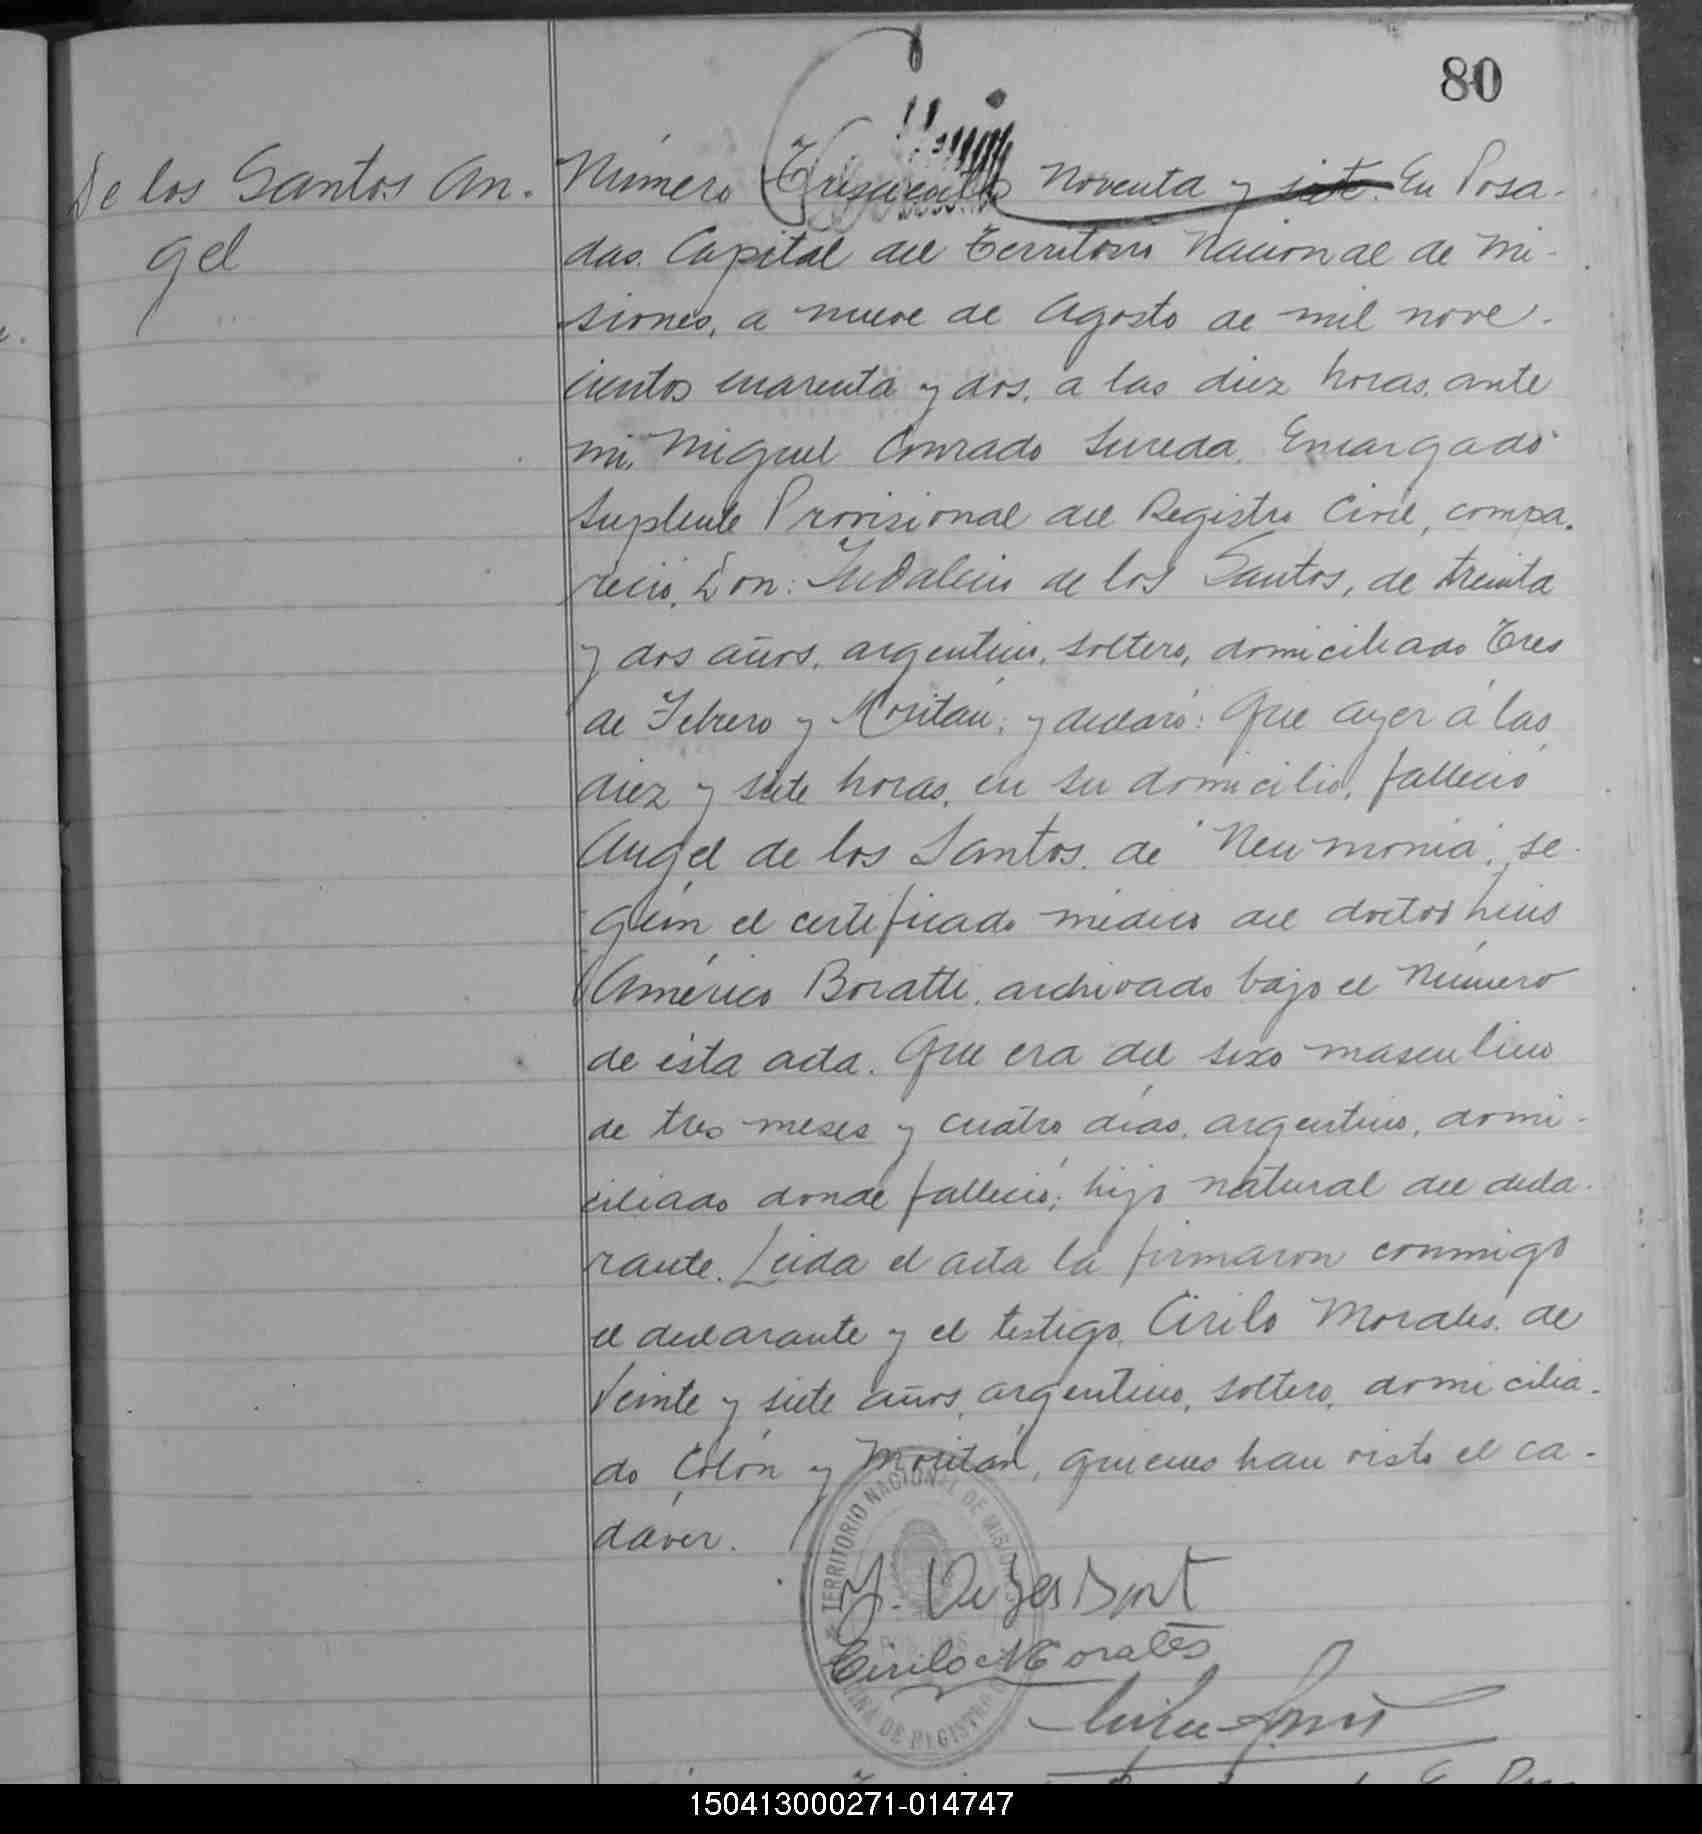 80
De los Santos An-
gel
Número Trescientos Noventa y siete. En Posa-
das. Capital del Territorio Nacional de Mi-
siones, a nueve de Agosto de mil nove-
cientos cuarenta y dos, a las diez horas, ante
mí, Miguel Conrado Sureda, Encargado
Suplente Provisional del Registro Civil, compa-
reció, Don: Indalecio de los Santos, de treinta
y dos años, argentino, soltero, domiciliado Tres
de Febrero y Moritán; y declaró: Que ayer á las
diez y siete horas, en su domicilio, falleció
Angel de los Santos, de "Neumonia", se-
gún el certificado médico del doctor Luis
Américo Boratti, archivado bajo el Número
de ésta acta. Que era del sexo masculino
de tres meses y cuatro días, argentino, domi-
ciliado donde falleció; hijo natural del decla-
rante. Leida el acta la firmaron conmigo
el declarante y el testigo, Cirilo Morales, de
Veinte y siete años, argentino, soltero, domicilia-
do Colón y Moritán, quienes han visto el ca-
dáver.
TERRITORIO NACIONAL DE MISIONES
DE REGISTRO
Cirilo Morales
150413000271-014747